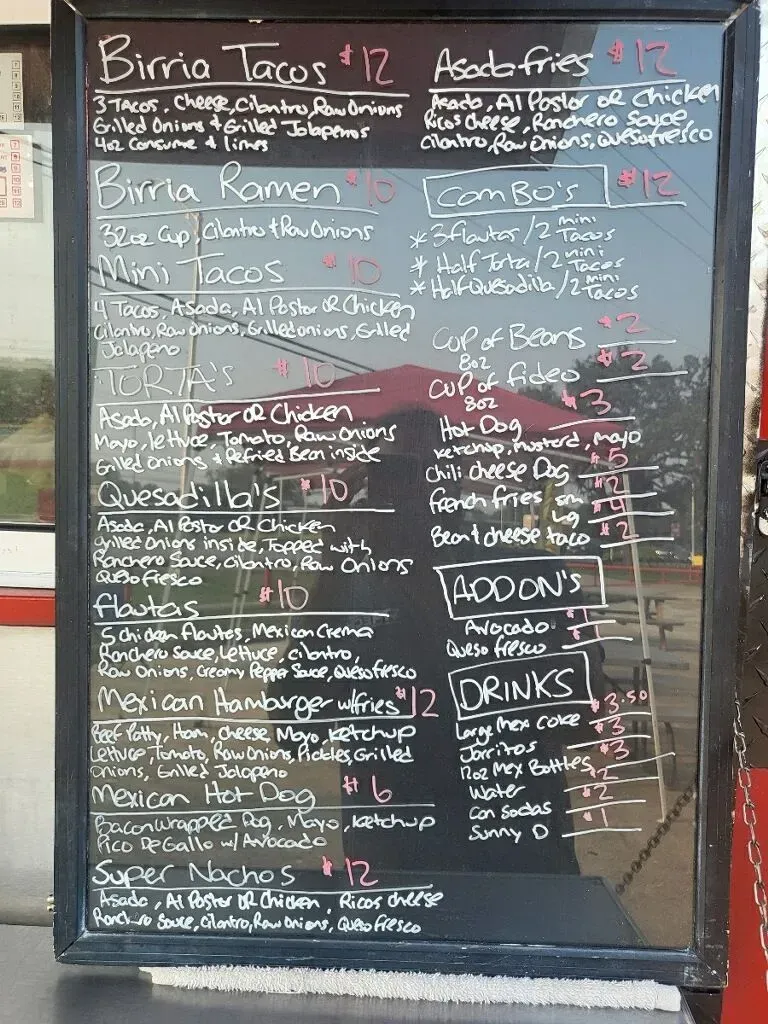 Birria Tacos $12
3 Tacos, Cheese, Cilantro, Raw Onions
Grilled Onions & Grilled Jalapeños
4oz Consume & limes
Birria Ramen $10
32oz Cup, Cilantro & Raw Onions
Mini Tacos $10
4 Tacos, Asada, Al Pastor OR Chicken
Cilantro, Raw Onions, Grilled onions, Grilled
Jalapeno
TORTA's $10
Asada, Al Pastor OR Chicken
Mayo, lettuce, Tomato, Raw Onions
Grilled Onions & Refried Bean inside
Quesadilla's $10
Asada, Al Pastor OR Chicken
grilled Onions inside, Topped with
Ranchero Sauce, Cilantro, Raw Onions
Queso Fresco
flautas $10
5 chicken Flautas, Mexican Crema
Ranchero Sauce, Lettuce, cilantro,
Raw Onions, Creamy Pepper Sauce, Quesofresco
Mexican Hamburger w/fries $12
Beef Patty, Ham, Cheese, Mayo, Ketchup
Lettuce, Tomato, Raw Onions, Pickles, Grilled
Onions, Grilled Jalapeno
Mexican Hot Dog $6
Bacon Wrapped Dog, Mayo, Ketchup
Pico De Gallo w/ Avocado
Super Nachos $12
Asada, Al Pastor OR Chicken, Ricos cheese
Ranchero Sauce, Cilantro, Raw Onions, Queso Fresco
Asada fries $12
Asada, Al Pastor OR Chicken
Ricos Cheese, Ranchero Sauce,
Cilantro, Raw Onions, quesofresco
ComBo's $12
* 3 flautas / 2 mini Tacos
* Half Torta / 2 mini Tacos
* Half Quesadilla / 2 mini Tacos
Cup of Beans $2
8oz
Cup of fideo $2
8oz
Hot Dog $3
Ketchup, mustard, mayo
Chili cheese Dog $5
french fries sm $2
Lg $4
Bean & cheese taco $2
ADDON's
Avocado $1
Queso fresco $1
DRINKS
Large Mex Coke $3.50
Jarritos $3
12oz Mex Bottles $3
Water $2
Can Sodas $2
Sunny D $1